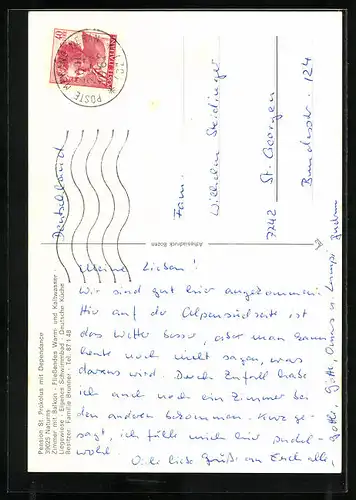 Pension St. Prokulus mit Dependance
39025 Naturns
Zimmer mit Balkon - Fließendes Warm- und Kaltwasser
Liegewiese - Eigenes Schwimmbad - Deutsche Küche
Besitzer: Familie Brunner - Tel. 87 1 48
Deutschland
Fam.
Wilhelm Steidinger
7742 St. Georgen
Bundesstr. 124
Meine Lieben!
Wir sind gut hier angekommen.
Hier auf der Alpensüdseite ist
das Wetter besser, aber man kann
heute noch nicht sagen, was
daraus wird. Durch Zufall habe
ich auch noch ein Zimmer bei
den anderen bekommen. Kurz ge-
sagt, ich fühle mich hier sauel-
wohl
Viele liebe Grüße an Euch alle,
Gotte,